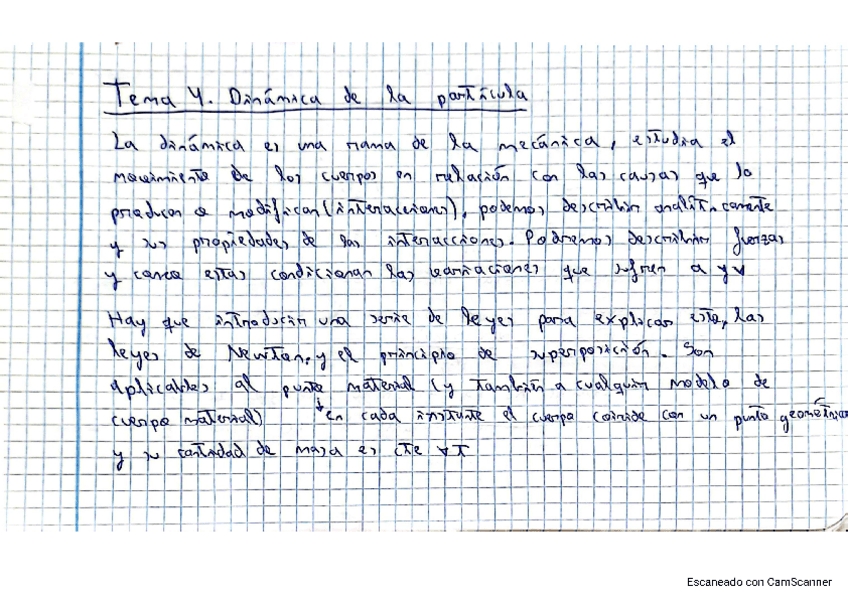 Tema 4. Dinámica de la partícula
La dinámica es una rama de la mecánica, estudia el
movimiento de los cuerpos en relación con las causas que lo
producen o modifican (interacciones), podemos describir analíticamente
y sus propiedades de las interacciones. Podremos describir fuerzas
y como estas condicionan las variaciones que sufren a y v
Hay que introducir una serie de leyes para explicar esto, las
leyes de Newton y el principio de superposición. Son
aplicables al punto material (y también a cualquier modelo de
cuerpo material) ↓ en cada instante el cuerpo coincide con un punto geométrico
y su cantidad de masa es cte ∀t
Escaneado con CamScanner